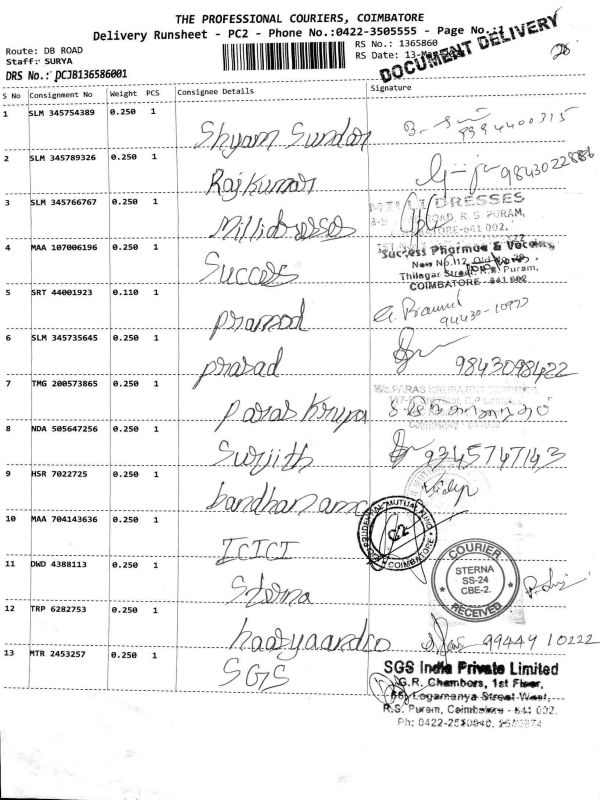 THE PROFESSIONAL COURIERS, COIMBATORE
Delivery Runsheet - PC2 - Phone No.:0422-3505555 - Page No.:1
Route: DB ROAD
Staff: SURYA
DRS No.: DCJB136586001
RS No.: 1365860
RS Date: 13-Mar
DOCUMENT DELIVERY
S No Consignment No Weight PCS Consignee Details Signature
1 SLM 345754389 0.250 1 Shyam Sundar 9994400315
2 SLM 345789326 0.250 1 Rajkumar 9843022886
3 SLM 345766767 0.250 1 Millidresses
DRESSES
R.S. PURAM,
641 002.
4 MAA 107006196 0.250 1 Success
Success Pharma &
New No.112, Old No.
Thilagar Street, R.S. Puram,
COIMBATORE - 641 002
5 SRT 44001923 0.110 1 Pramod 94430-10973
6 SLM 345735645 0.250 1 Prasad 9843098422
7 TMG 200573865 0.250 1 Paras Krupa
8 NDA 505647256 0.250 1 Surjith 9345747143
9 HSR 7022725 0.250 1 bandhan amc
10 MAA 704143636 0.250 1 ICICI
PRUDENTIAL MUTUAL FUND
C2
COIMBATORE
11 DWD 4388113 0.250 1 Sterna
COURIER
STERNA
SS-24
CBE-2.
RECEIVED
12 TRP 6282753 0.250 1 haatyaandco 99449 10222
13 MTR 2453257 0.250 1 SGS
SGS India Private Limited
G.R. Chambers, 1st Floor,
Logamanya Street West,
R.S. Puram, Coimbatore - 641 002.